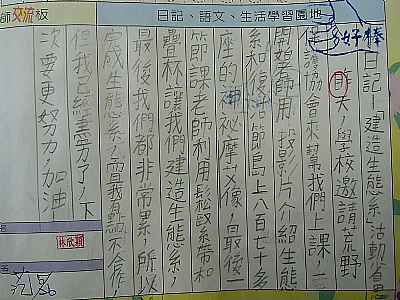 師交流板
日記、語文、生活學習園地
好棒
日記—建造生態系活動省思
昨天,學校邀請荒野
保護協會來幫我們上課,一
開始師用投影片介紹生態
系和復活節島上八百七十多
座的神祕摩艾像,最後一
節課老師利用鬆緊帶和
疊杯讓我們建造生態系,
最後我們都非常累,所以
完成生態系,而我討論不合作
但我已經盡力了,下
次要更努力,加油
名
林欣穎
名